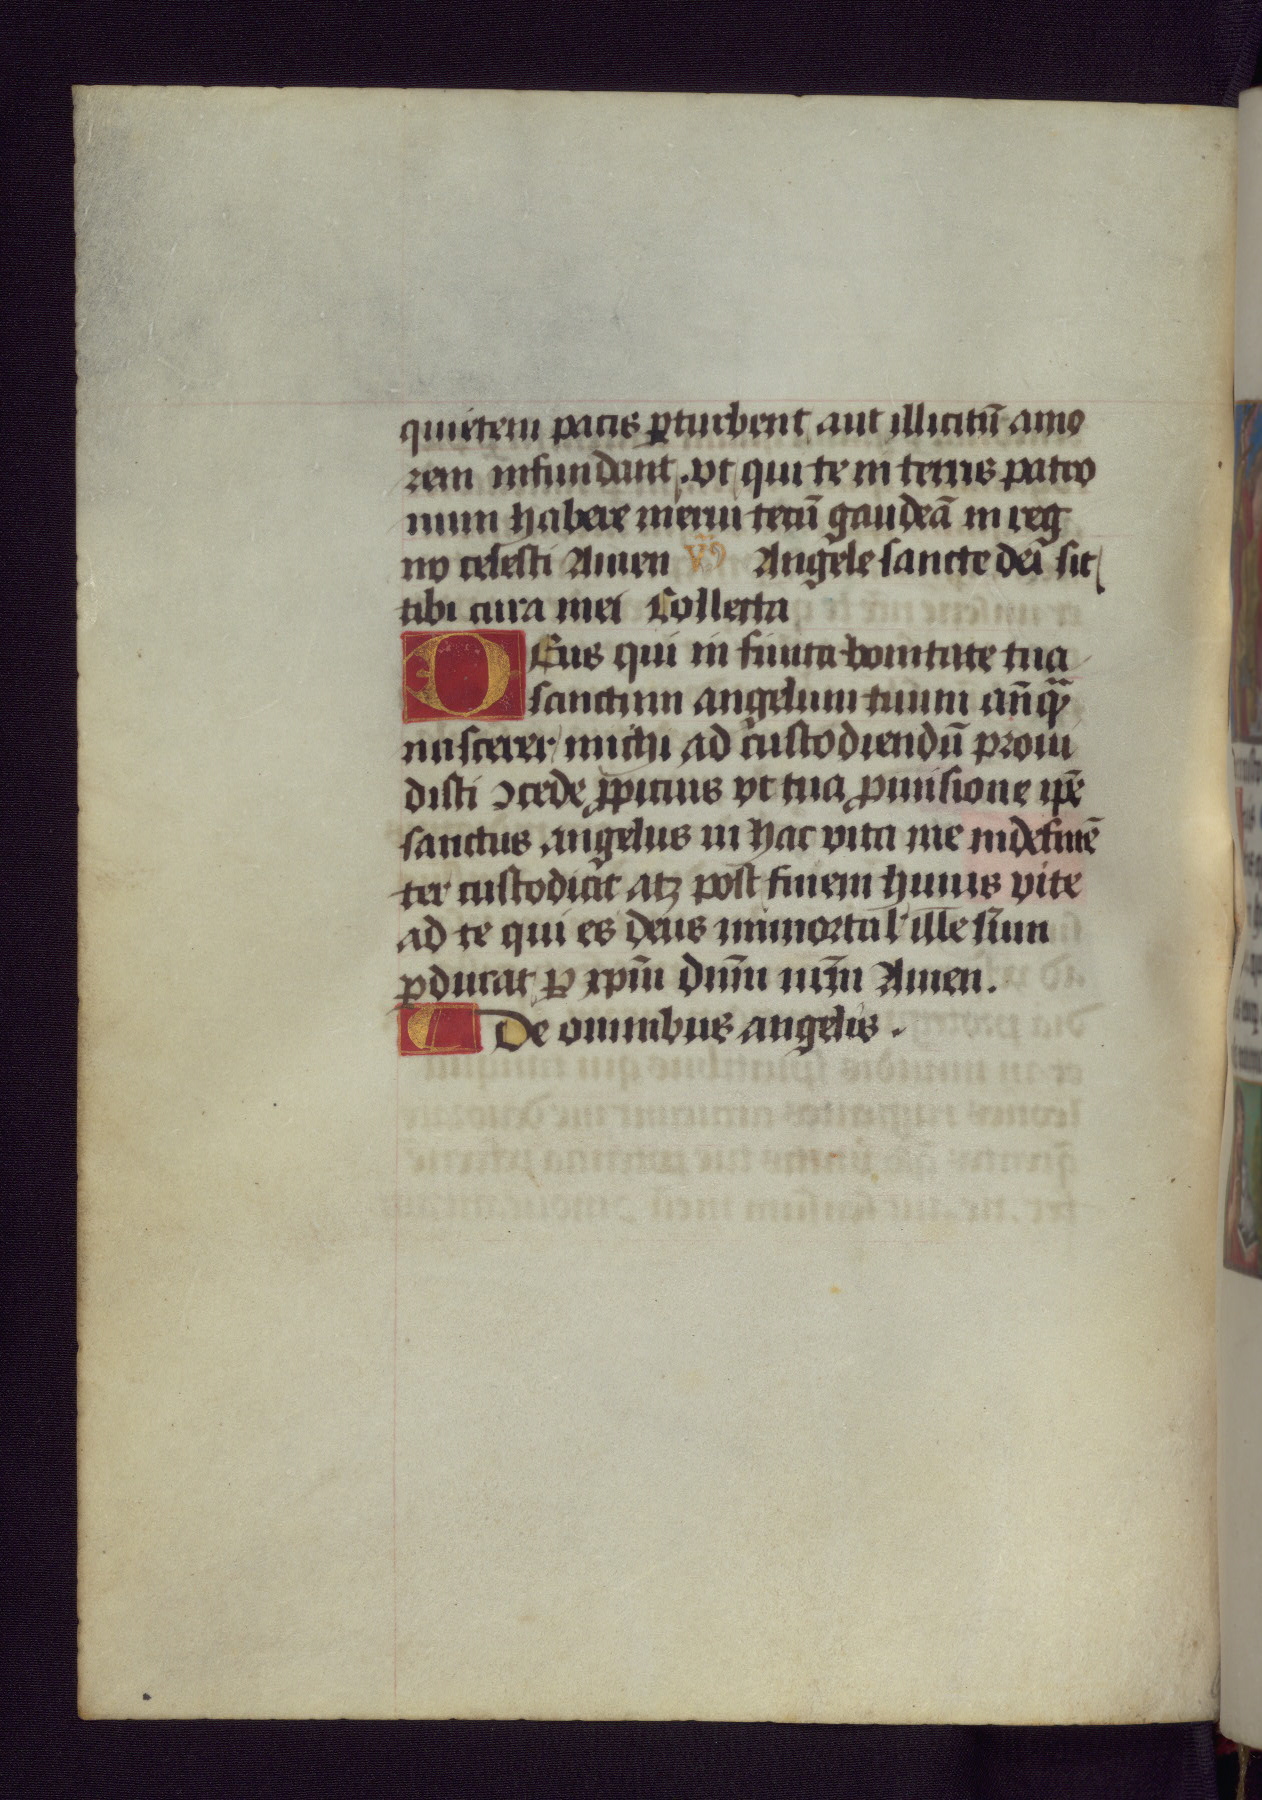 quietem pacis ꝑturbent aut illicitū amo
rem infundant . vt qui te in terris patro
num habere merui tecū gaudeā in reg
no celesti Amen Vꝰ Angele sancte dei sit
tibi cura mei Collecta
DEus qui in finita bonitate tua
sanctum angelum tuum an̄qͣ
nascerer michi ad custodiendū proui
disti ↄcede ꝓpicius vt tua ꝓuisione ip̄e
sanctus angelus in hac vita me indefinē
ter custodiat atꝫ post finem huius vite
ad te qui es deus immortal' ille sum
ꝑducat ꝑ xp̄m dn̄m nr̄m Amen .
¶ De omnibus angelis .